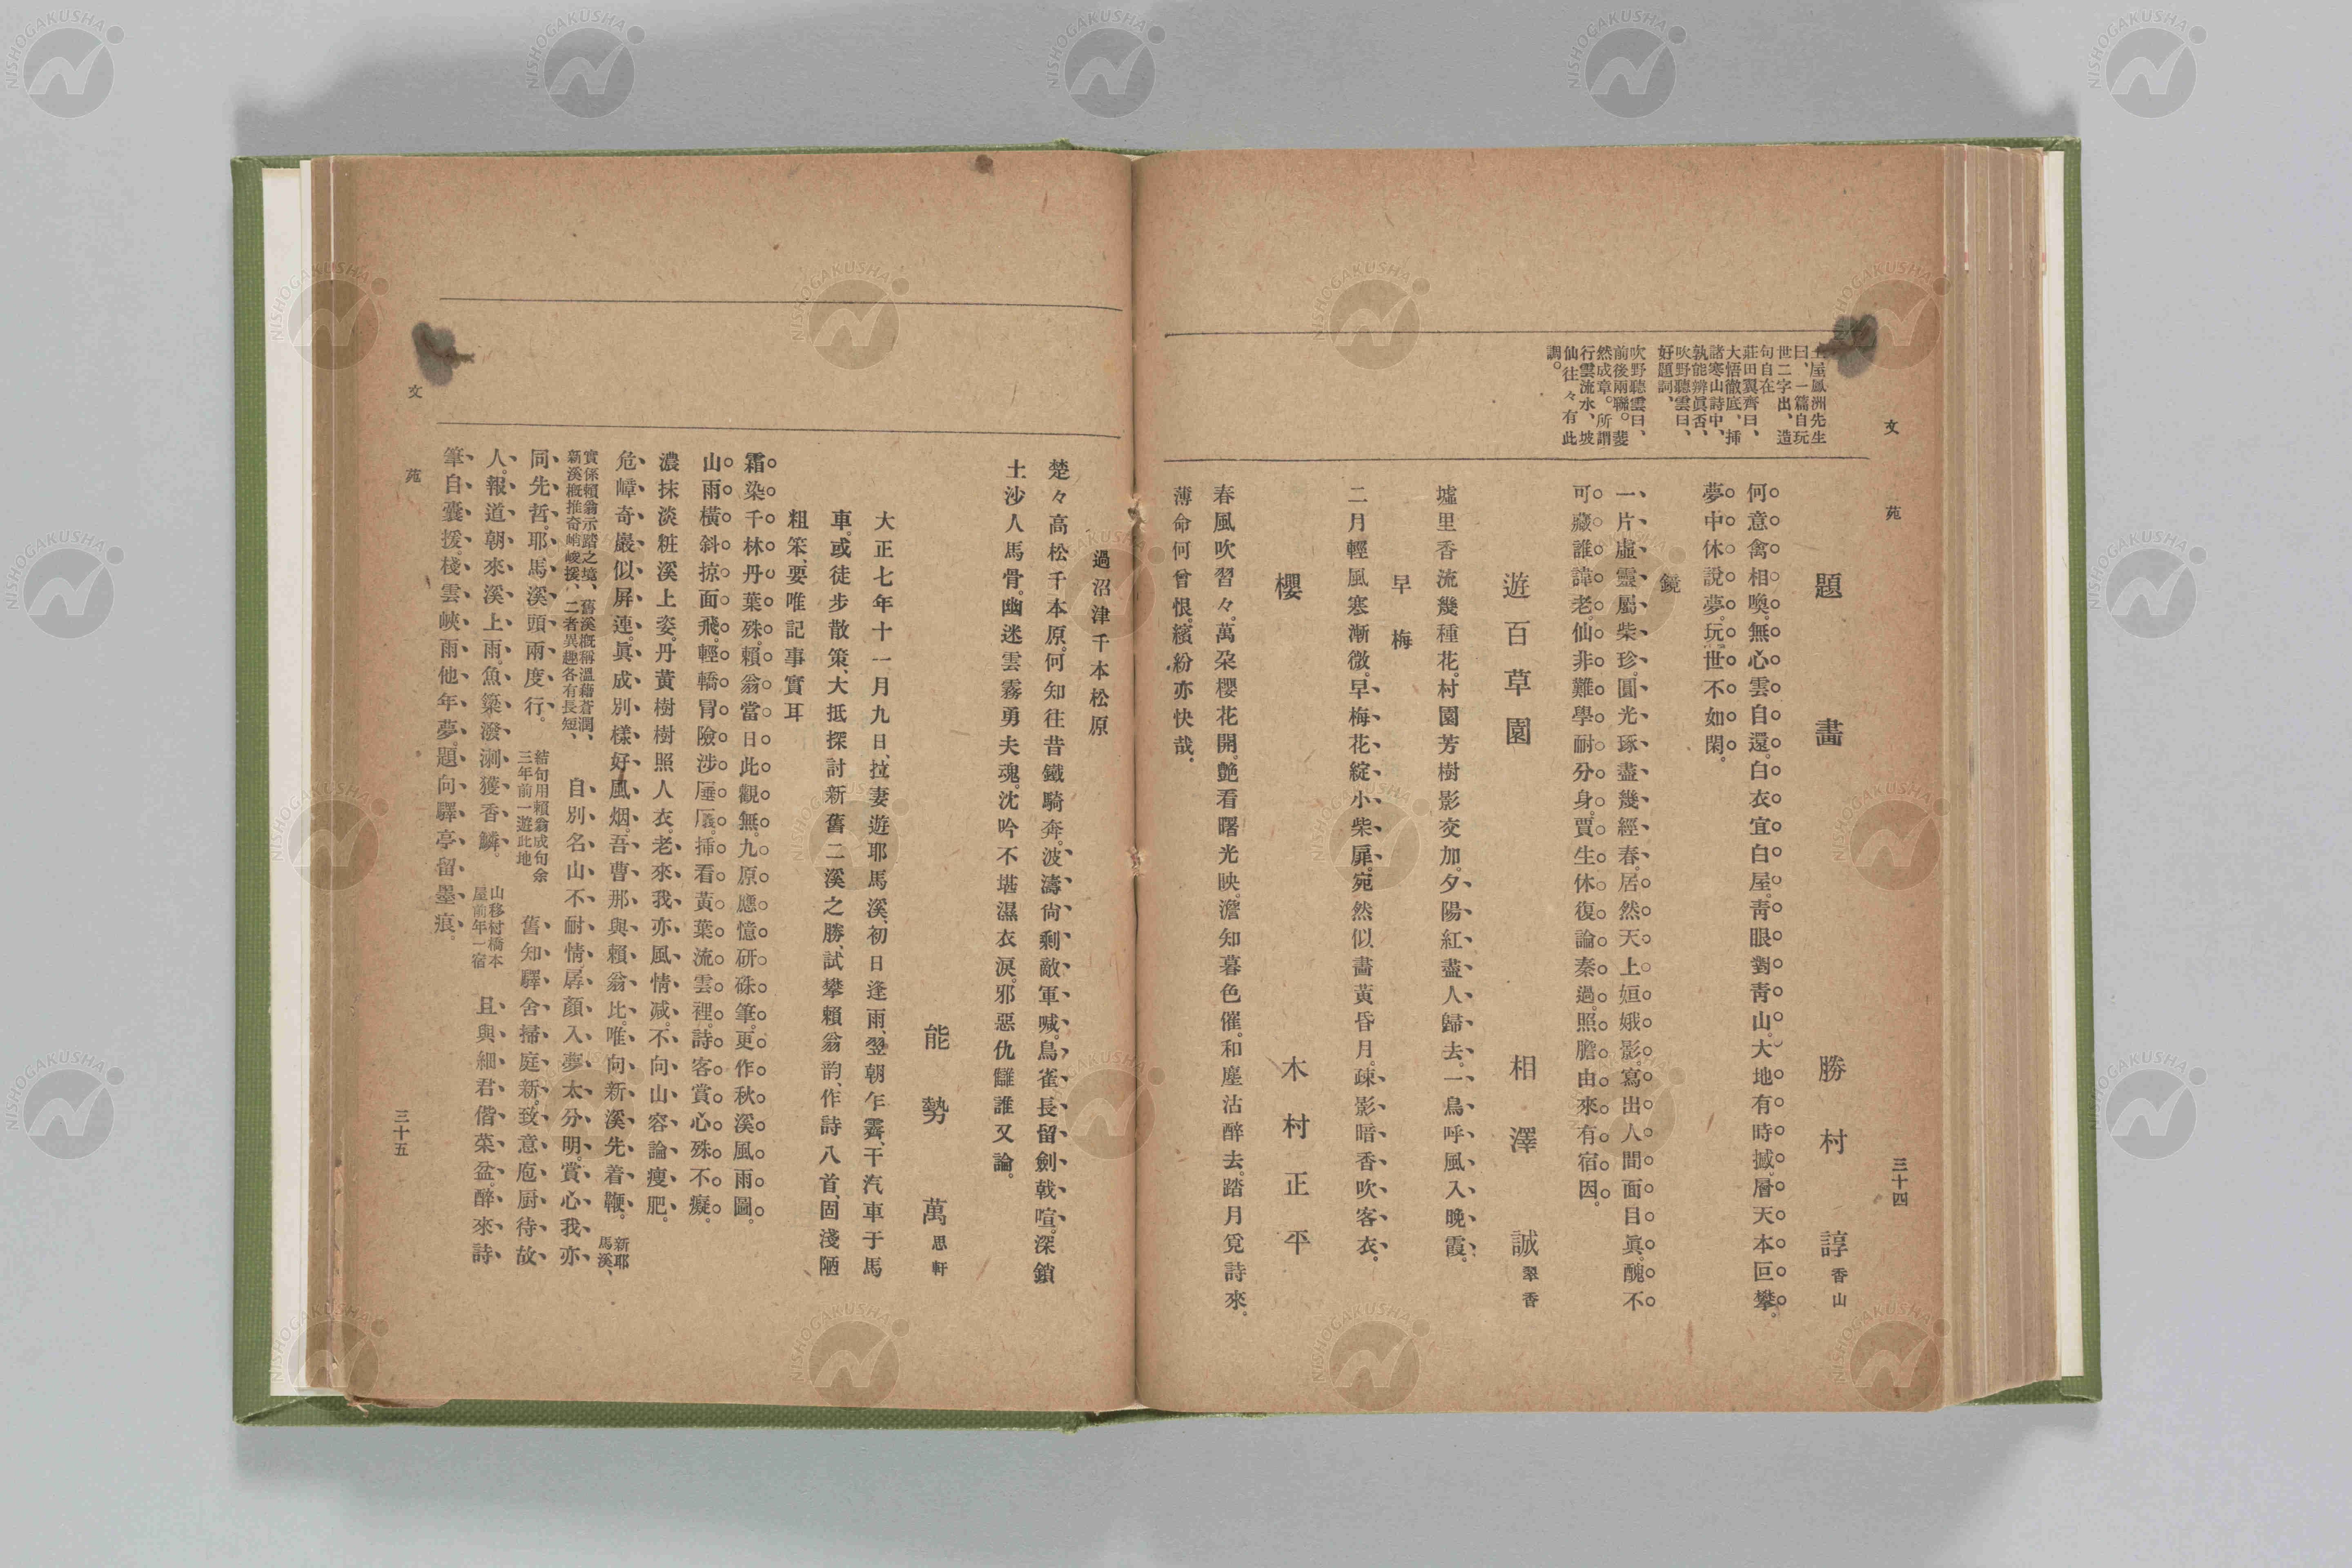 文苑
三十四
土屋鳳洲先生
曰、一篇自玩
世二字出、造
句自在
莊田翼齊曰、
大悟徹底、挿
諸寒山詩中、
孰能辨眞否、
吹野聽雲曰、
好題詞、
吹野聽雲曰、
前後兩聯。斐
然成章。所謂
行雲流水、坡
仙往々有此
調。
題畵
勝村諄香山
何意禽相喚。無心雲自還。白衣宜白屋。靑眼對靑山。大地有時撼。層天本叵攀。
夢中休說夢。玩世不如閑。
鏡
一片虛靈屬柴珍。圓光琢盡幾經春。居然天上姮娥影。寫出人間面目眞。醜不
可藏誰諱老。仙非難學耐分身。賈生休復論秦過。照膽由來有宿因。
遊百草園
相澤誠翠香
墟里香流幾種花。村園芳樹影交加。夕陽紅盡人歸去。一鳥呼風入晚霞。
早梅
二月輕風寒漸微。早梅花綻小柴扉。宛然似畵黃昏月。疎影暗香吹客衣。
櫻
木村正平
春風吹習々。萬朶櫻花開。艶看曙光映。澹知暮色催。和塵沽醉去。踏月覓詩來。
薄命何曾恨。繽紛亦快哉。
過沼津千本松原
楚々高松千本原。何知往昔鐵騎奔。波濤尙剩敵軍喊。鳥雀長留劍戟喧。深鎖
土沙人馬骨。幽迷雲霧勇夫魂。沈吟不堪濕衣淚。邪惡仇讎誰又論。
能勢萬思軒
大正七年十一月九日、拉妻遊耶馬溪、初日逢雨、翌朝乍霽、干汽車于馬
車。或徒步散策、大抵探討新舊二溪之勝、試攀賴翁韵、作詩八首、固淺陋
粗笨、要唯記事實耳
霜染千林丹葉殊。賴翁當日此觀無。九原應憶硏硃筆。更作秋溪風雨圖。
山雨橫斜掠面飛。輕轎冒險涉厜㕒。挿看黃葉流雲裡。詩客賞心殊不癡。
濃抹淡粧溪上姿。丹黃樹樹照人衣。老來我亦風情减。不向山容論瘦肥。
危嶂奇巖似屏連。眞成別樣好風烟。吾曹那與賴翁比。唯向新溪先着鞭。新耶馬溪、
實係賴翁示踏之境、舊溪槪稱溫藉蒼潤、新溪槪推奇峭峻援、二者異趣各有長短、自別名山不耐情。孱顏入夢太分明。賞心我亦
同先哲。耶馬溪頭兩度行。結句用賴翁成句余三年前一遊此地舊知驛舍掃庭新。致意庖厨待故
人。報道朝來溪上雨。魚簗潑溂獲香鱗。山移村橋本屋前年一宿且與細君偕栄盆。醉來詩
筆自囊援。棧雲峽雨他年夢。題向驛亭留墨痕。
文苑
三十五